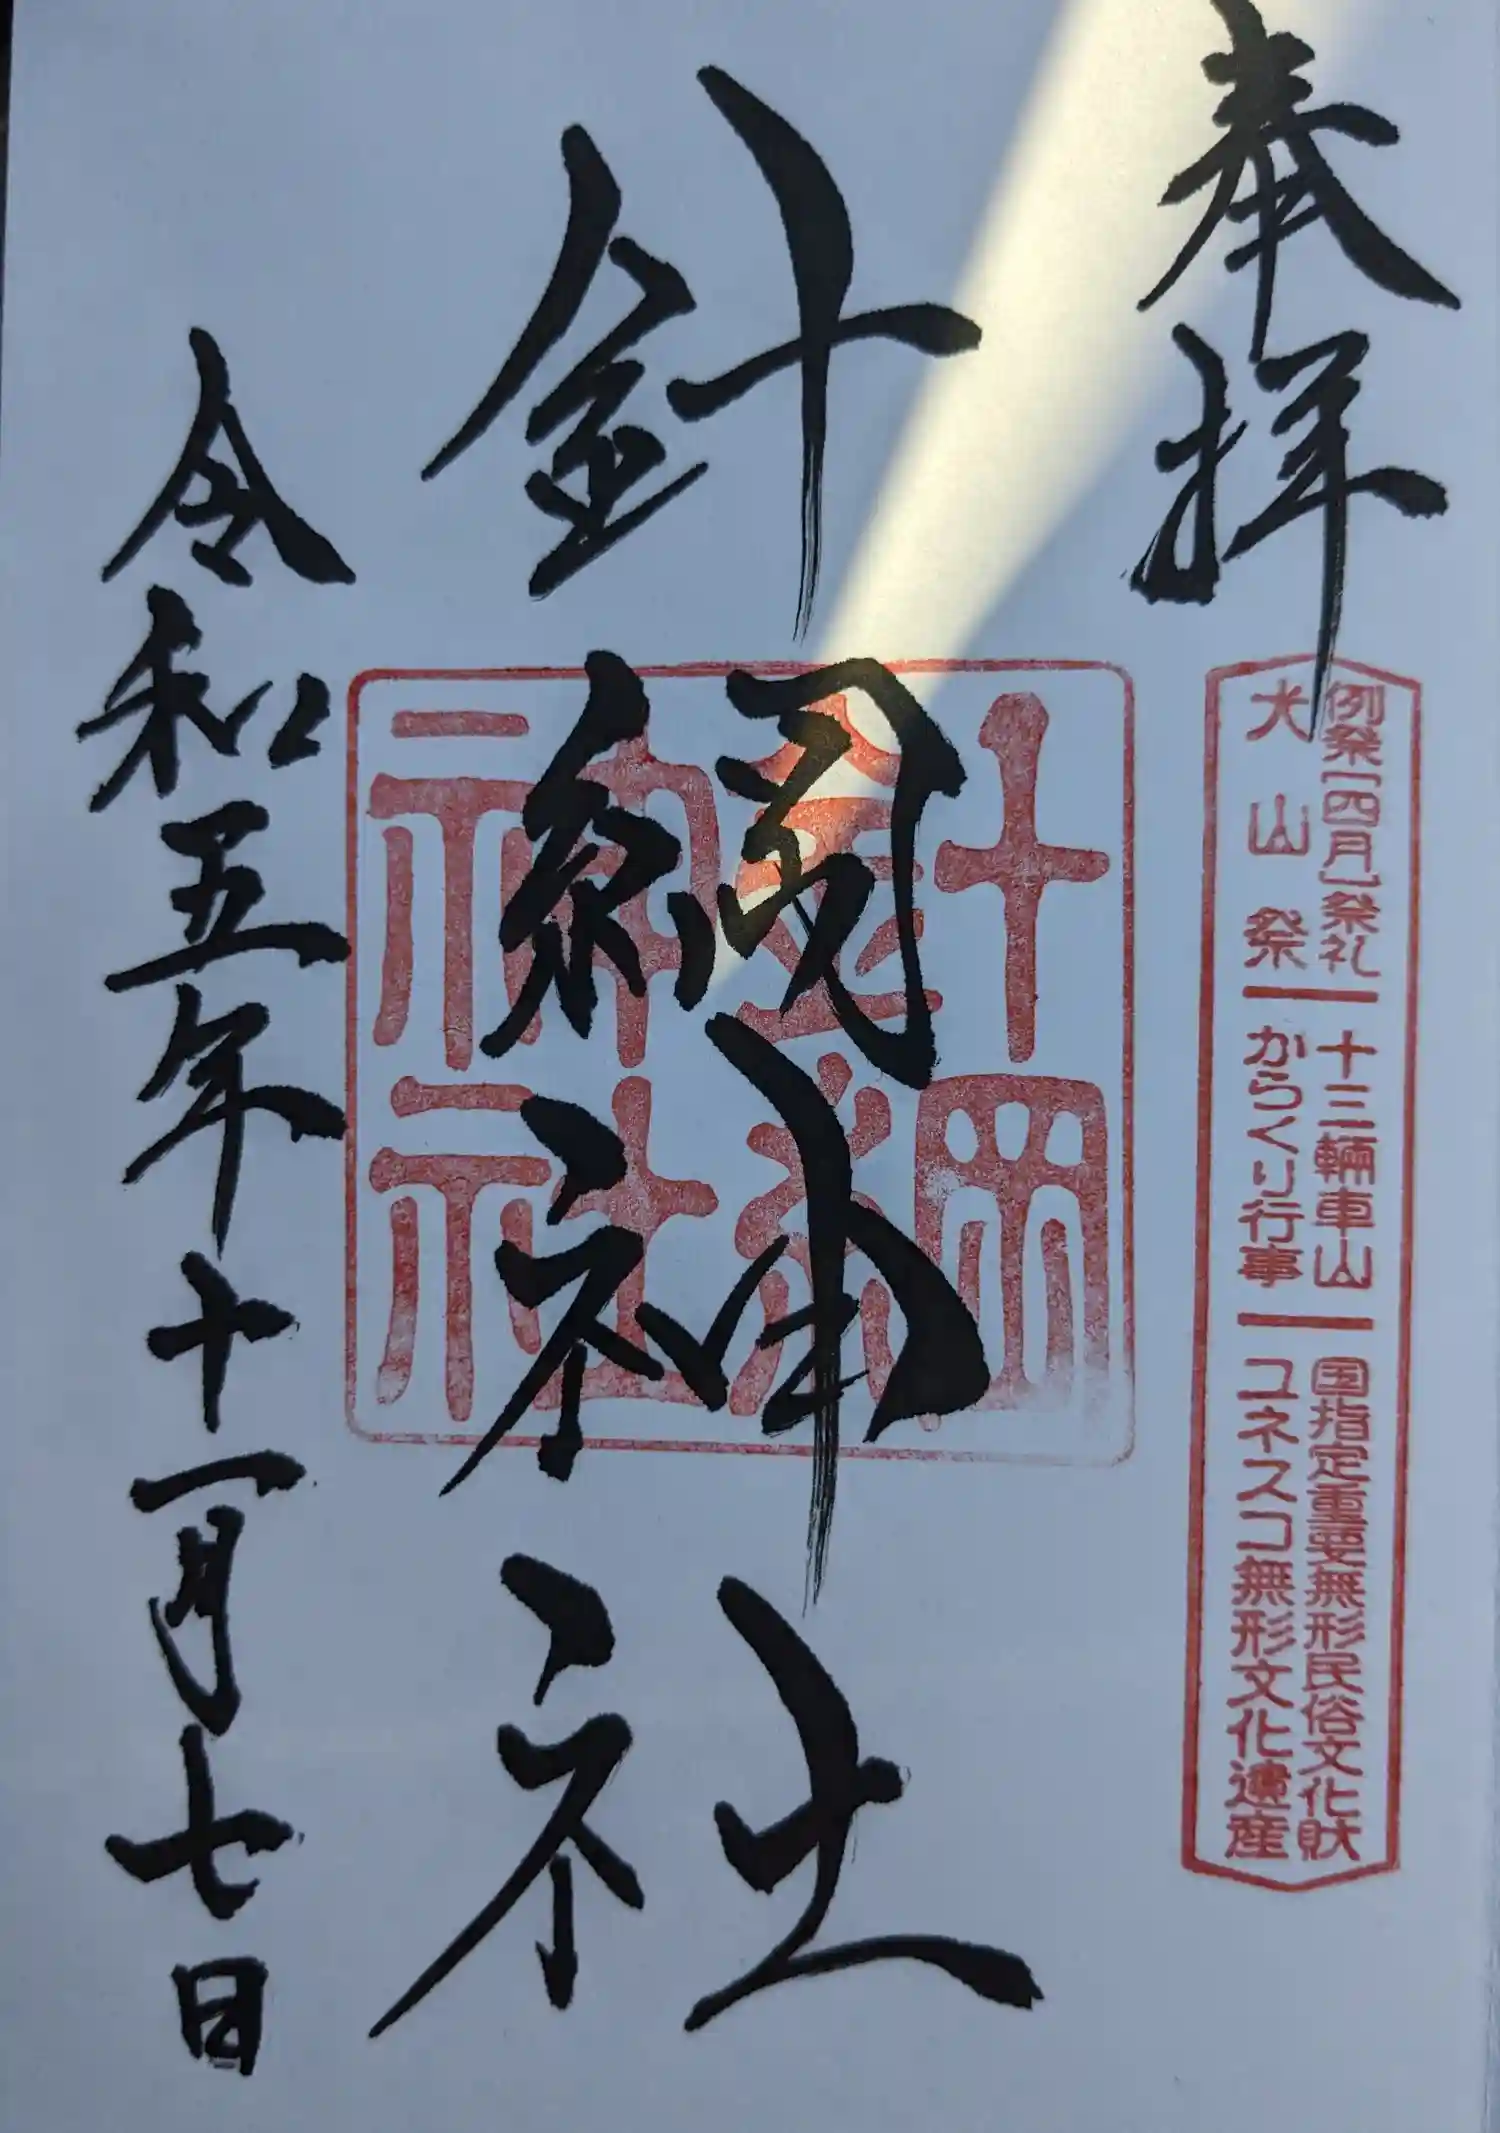 奉拝
例祭[四月]祭礼ー十三輛車山ー国指定重要無形民俗文化財
犬山祭ーからくり行事ーユネスコ無形文化遺産
針綱神社
針綱神社
令和五年十一月七日